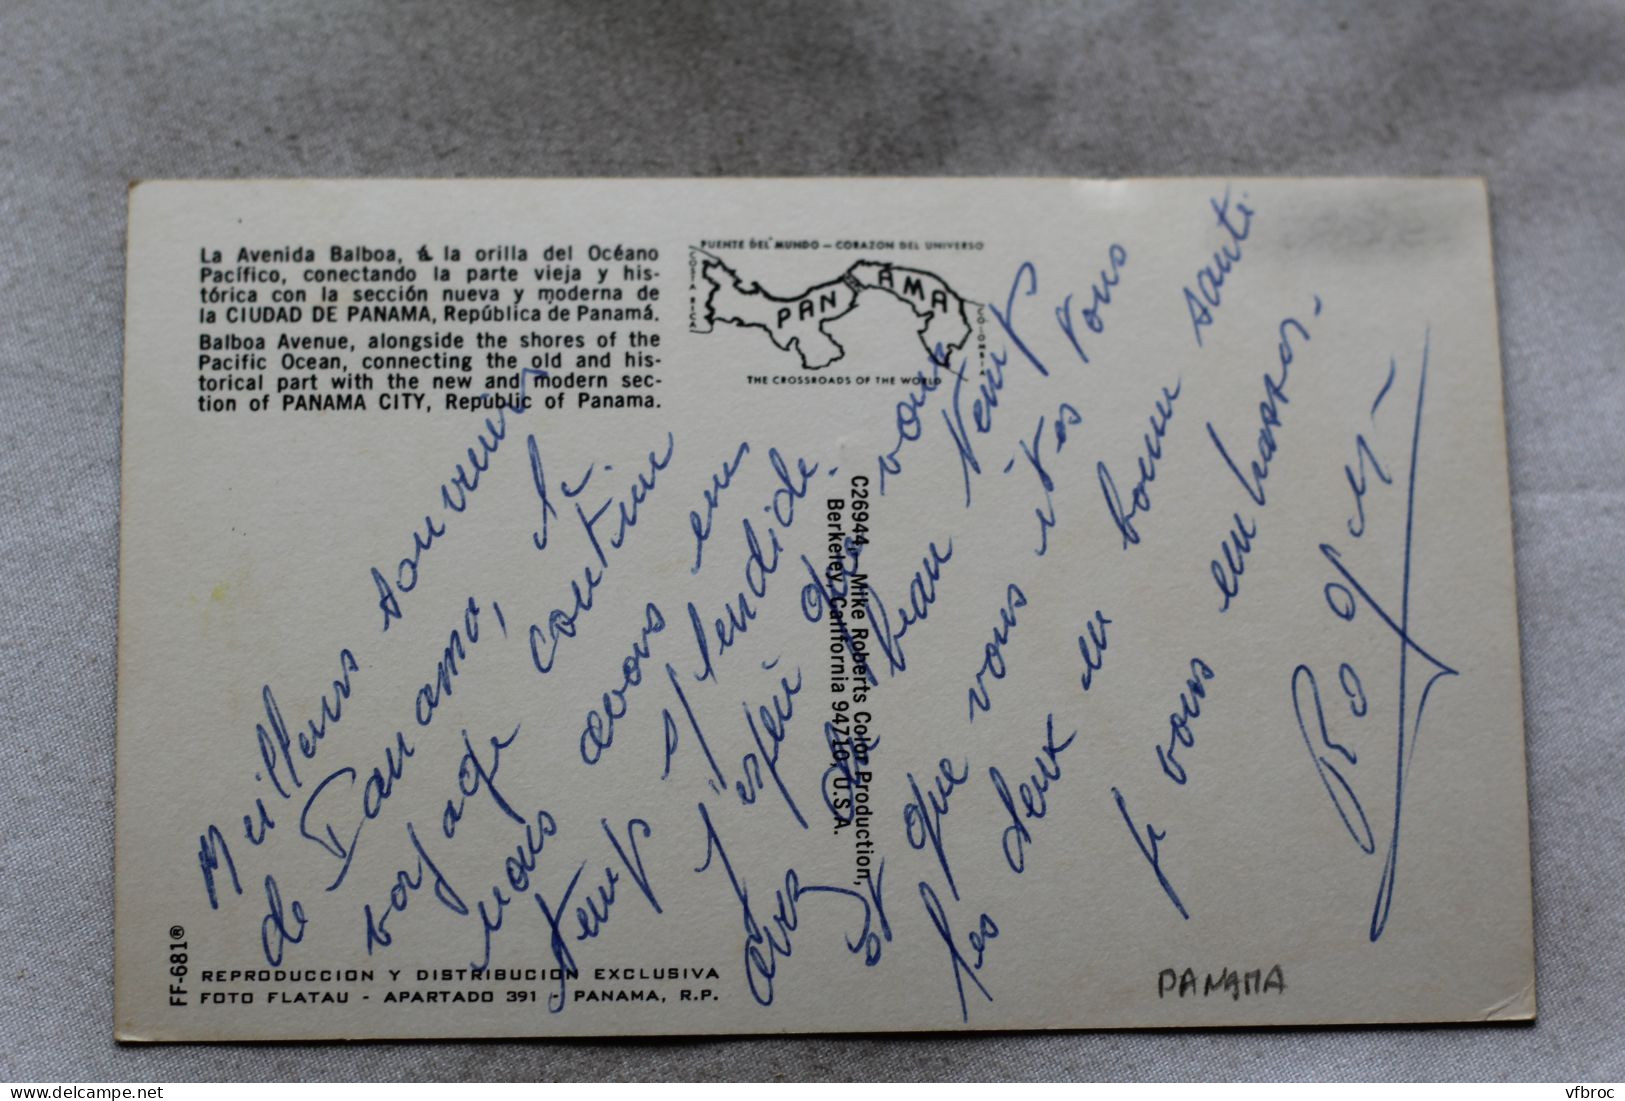 La Avenida Balboa, á la orilla del Océano
Pacífico, conectando la parte vieja y his-
tórica con la sección nueva y moderna de
la CIUDAD DE PANAMA, República de Panamá.
Balboa Avenue, alongside the shores of the
Pacific Ocean, connecting the old and his-
torical part with the new and modern sec-
tion of PANAMA CITY, Republic of Panama.
PUENTE DEL MUNDO – CORAZON DEL UNIVERSO
COSTA RICA
PANAMA
COLOMBIA
THE CROSSROADS OF THE WORLD
C26944 – Mike Roberts Color Production,
Berkeley, California 94710, U.S.A.
Meilleurs souvenirs
de Panama, le
voyage continue
nous avons eu
temps splendide.
J'espère que vous
avez du beau temps
et que vous êtes tous
les deux en bonne santé.
Je vous embrasse.
Roger
FF-681®
REPRODUCCION Y DISTRIBUCION EXCLUSIVA
FOTO FLATAU - APARTADO 391 - PANAMA, R.P.
PANAMA
vfbroc
delcampe.net